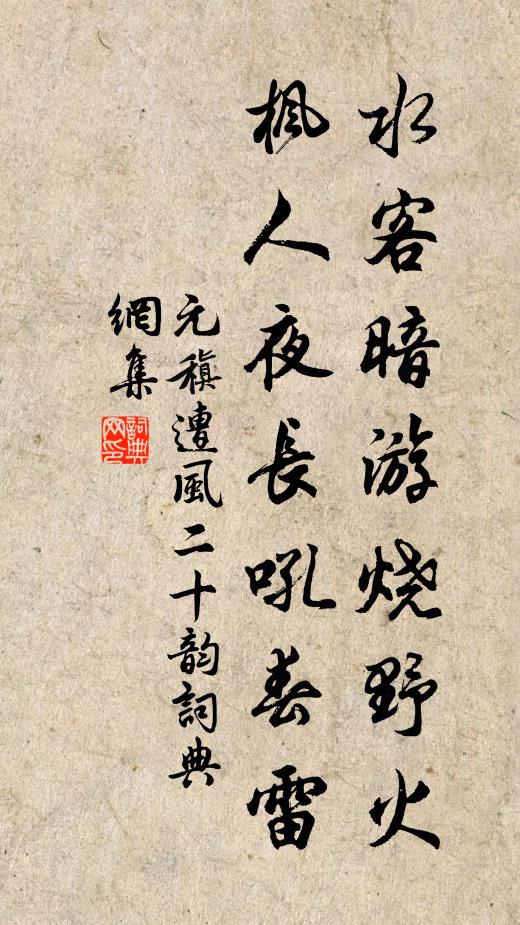 水客暗游烧野火
枫人夜長吼春雷
元稹遭風二十韵詞典
網集
詞典
网印